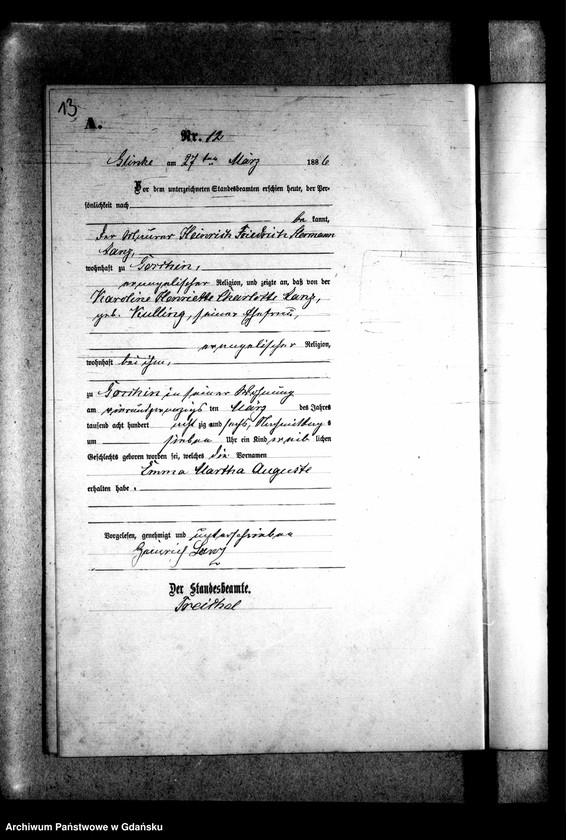 13
A.
Nr. 12
Glinke am 27ten März 1886
Vor dem unterzeichneten Standesbeamten erschien heute, der Per-
sönlichkeit nach
be kannt,
der Maurer Heinrich Friedrich Hermann
Lanz,
wohnhaft zu
evangelischer Religion, und zeigte an, daß von der
Karoline Henriette Charlotte Lanz,
geb. Kulling, seiner Ehefrau,
evangelischer Religion,
wohnhaft bei ihm,
zu in seiner Wohnung
am vierundzwanzigsten März des Jahres
tausend acht hundert acht zig und sechs, Nachmittag s
um sieben Uhr ein Kind weib lichen
Geschlechts geboren worden sei, welches die Vornamen
Emma Martha Auguste
erhalten habe.
Vorgelesen, genehmigt und unterschrieben
Heinrich Lanz
Der Standesbeamte.
Treichel
Archiwum Państwowe w Gdańsku